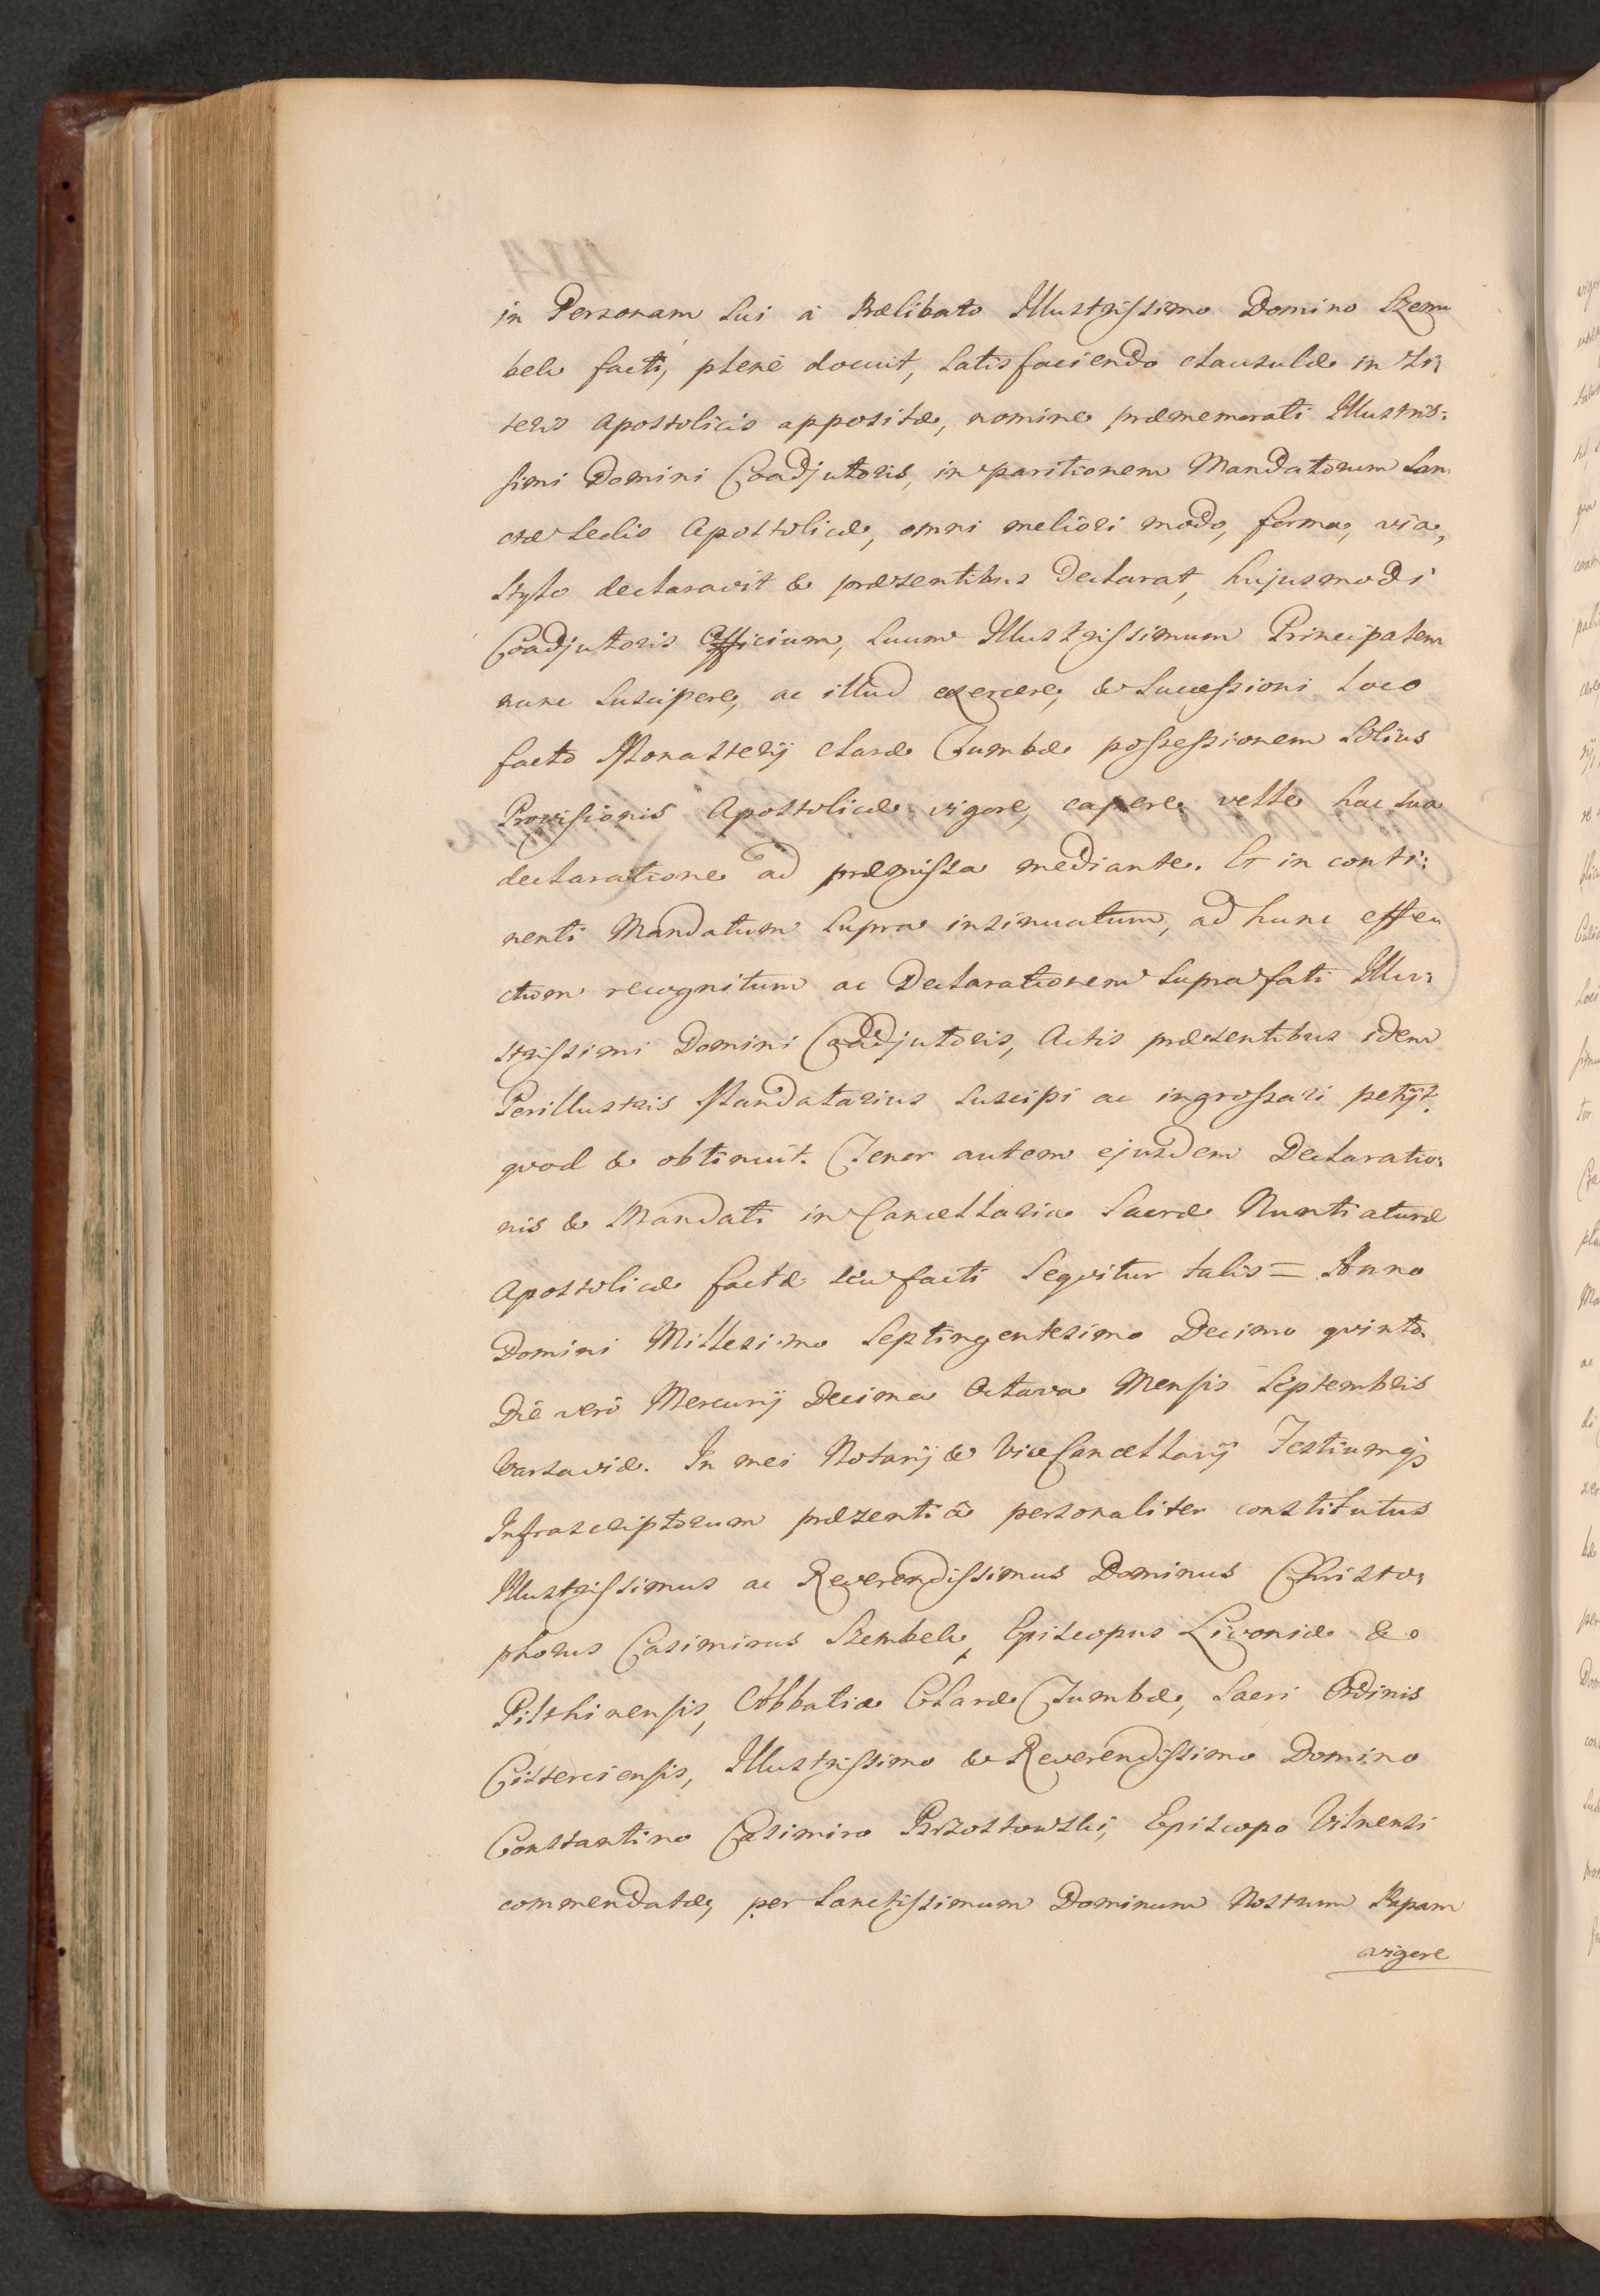 in Personam Sui à Prælibato Illustrissimo Domino Szem
bek facti, plenè docuit, Satisfaciendo clausulæ in Li:
teris Apostolicis appositæ, nomine præmemorati Illustris:
simi Domini Coadjutoris, in paritionem Mandatorum San
ctæ Sedis Apostolicæ, omni meliori modo, forma, via,
Stylo declaravit & præsentibus declarat, hujusmodi
Coadjutoris Officium, Suum Illustrissimum Principalem
nunc Suscipere, ac illud exercere, & Sucessioni Loco
facto Monasterij Claræ Tumbæ possessionem Solius
Provisionis Apostolicæ vigore, capere velle hac Sua
declaratione ad præmissa mediante. Et in conti:
nenti Mandatum Supra insinuatum, ad hunc effe
ctum recognitum ac Declarationem Supra fati Illu:
strissimi Domini Coadjutoris, Actis præsentibus idem
Perillustris Mandatarius Suscipi ac ingrossari petijt,
quod & obtinuit. Tenor autem ejusdem Declaratio:
nis & Mandati in Cancellaria Sacræ Nuntiaturæ
Apostolicæ factæ seu facti Sequitur talis = Anno
Domini Millesimo Septingentesimo Decimo quinto.
Die verò Mercurij Decima Octava Mensis Septembris
Varsaviæ. In mei Notarij & ViceCancellarij Testiumq3
Infrascriptorum præsentiâ personaliter constitutus
Illustrissimus ac Reverendissimus Dominus Christo:
phorus Casimirus Szembek, Episcopus Livoniæ &
Pilthinensis, Abbatiæ Claræ Tumbæ, Sacri Ordinis
Cisterciensis, Illustrissimo & Reverendissimo Domino
Constantino Casimiro Brzostowski, Episcopo Vilnensi
commendatæ, per Sanctissimum Dominum Nostrum Papam
vigore